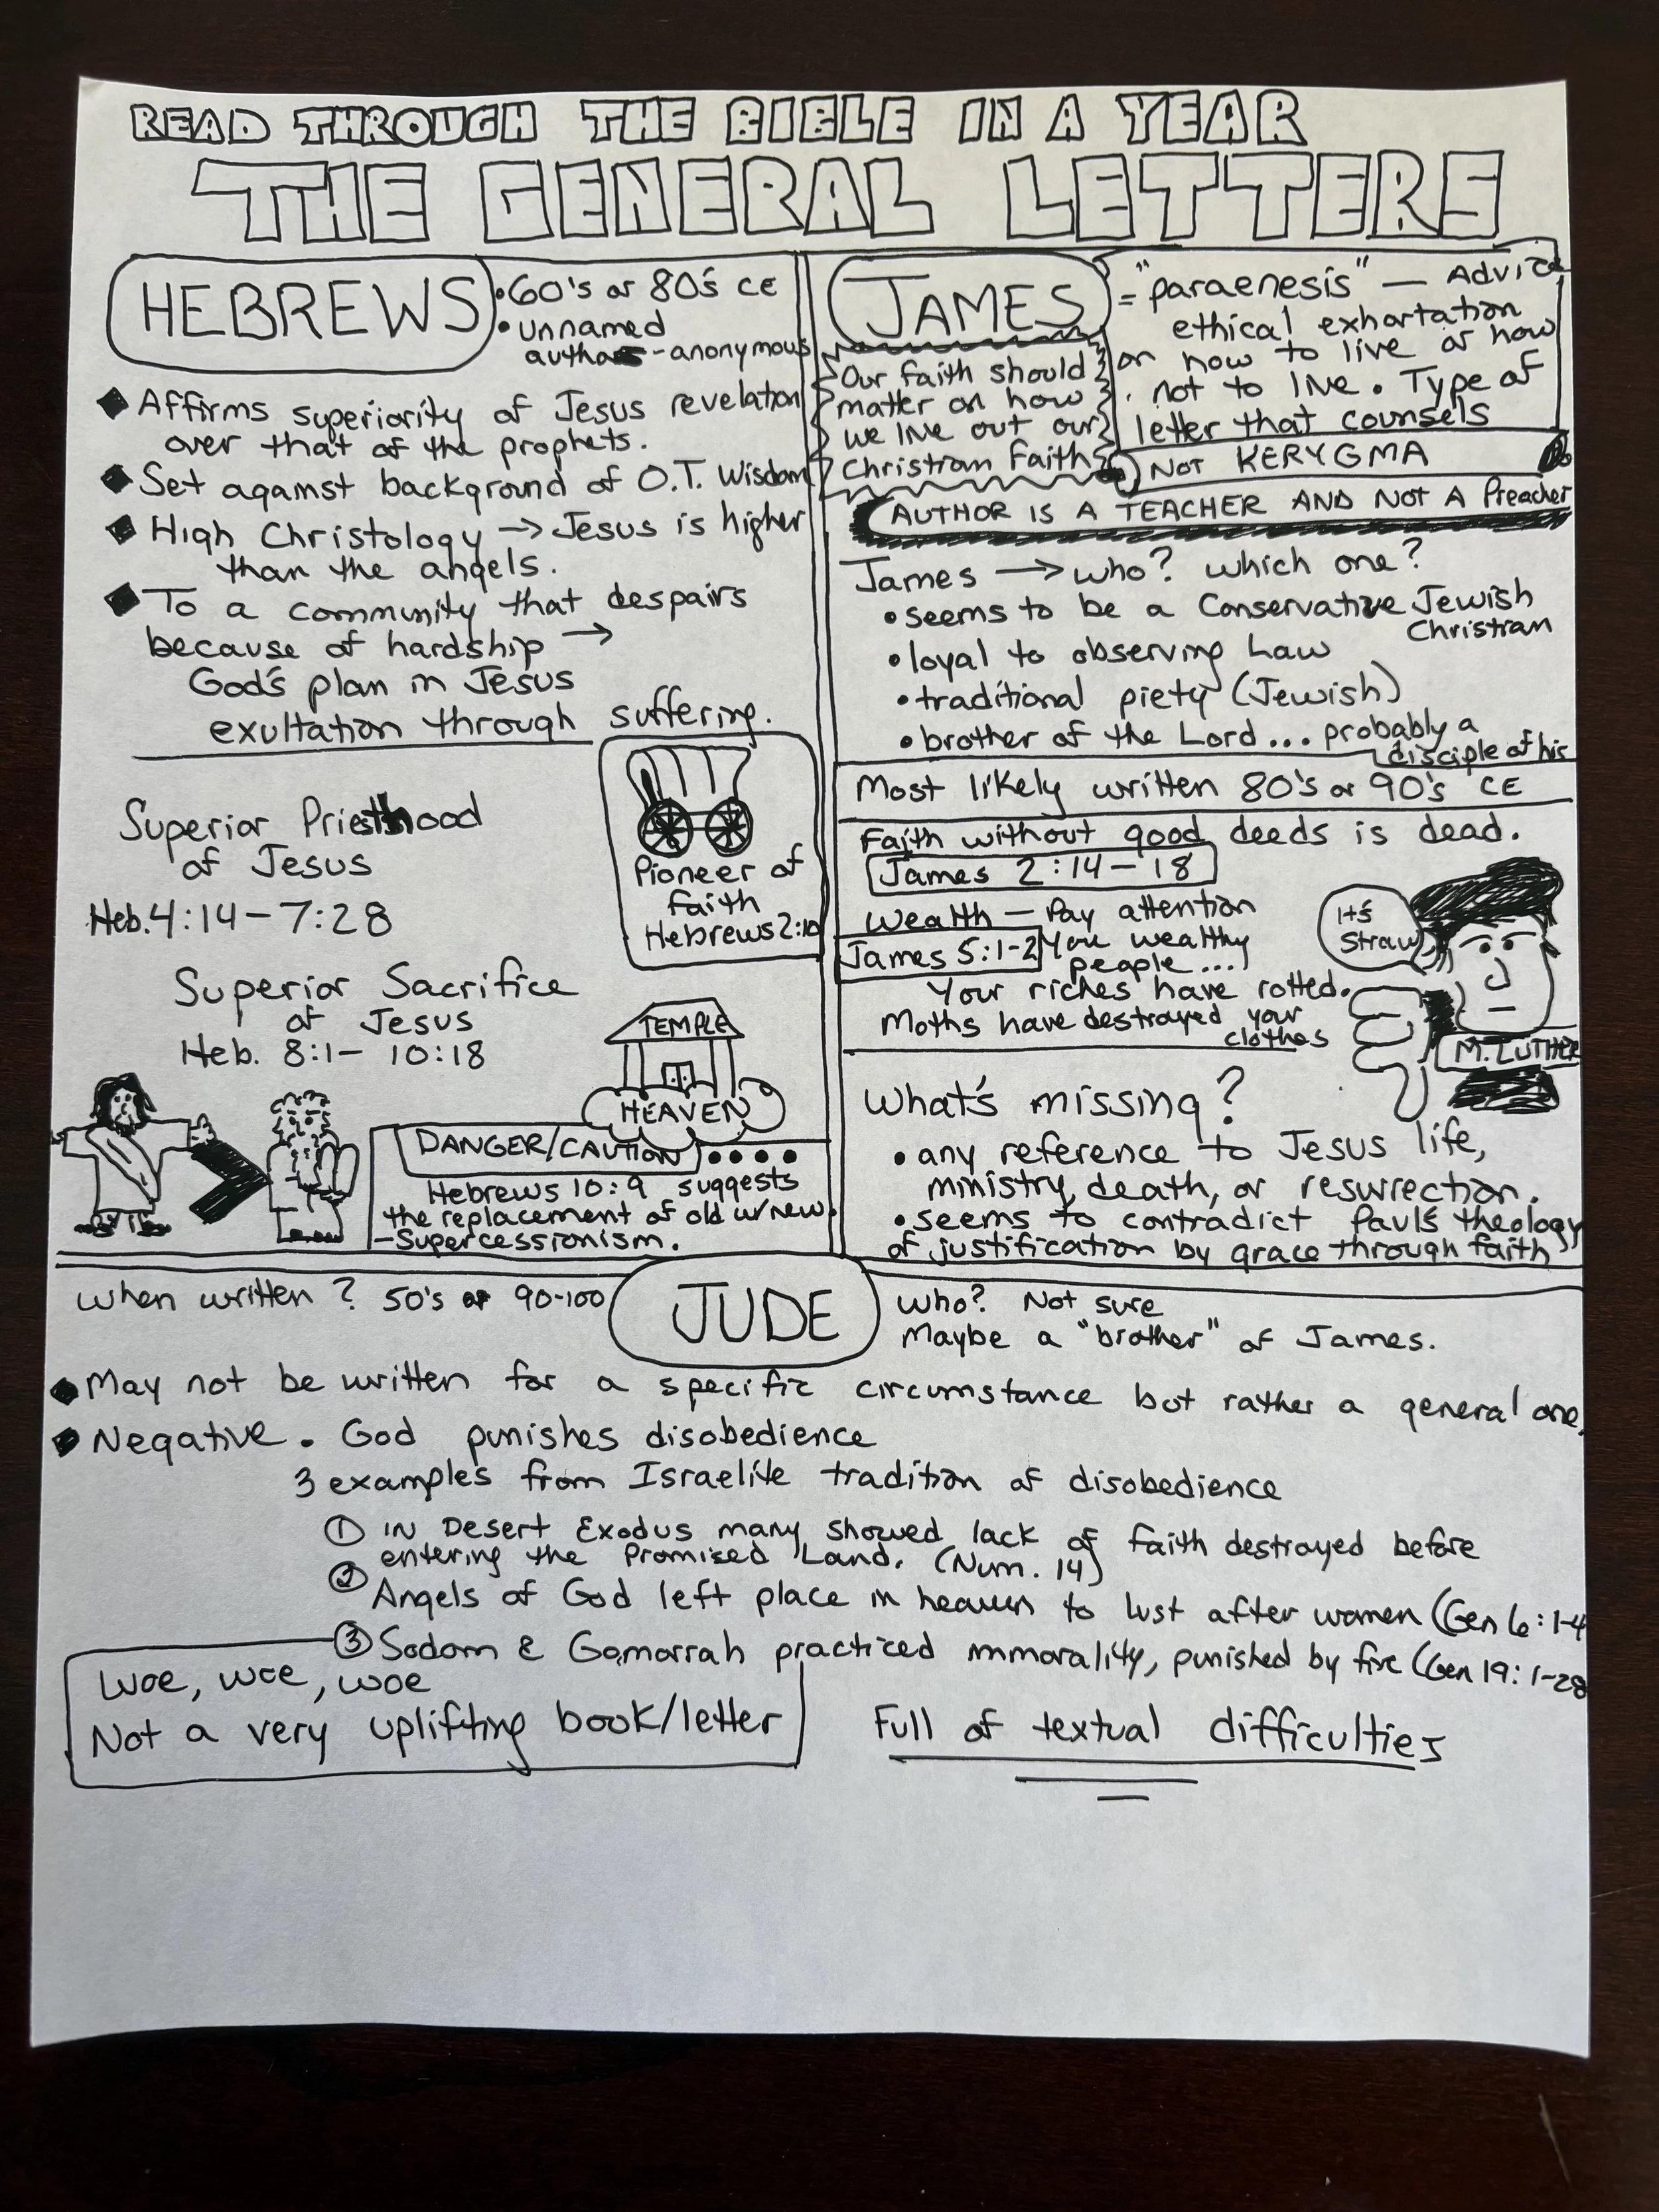 READ THROUGH THE BIBLE IN A YEAR
THE GENERAL LETTERS
HEBREWS
• 60's or 80's CE
• unnamed
author - anonymous
Affirms superiority of Jesus revelation
over that of the prophets.
Set against background of O.T. Wisdom
High Christology → Jesus is higher
than the angels.
To a community that despairs
because of hardship →
God's plan in Jesus
exultation through suffering.
Superior Priesthood
of Jesus
Heb. 4:14-7:28
Pioneer of
faith
Hebrews 2:10
Superior Sacrifice
of Jesus
Heb. 8:1- 10:18
TEMPLE
HEAVEN
DANGER/CAUTION ....
Hebrews 10:9 suggests
the replacement of old w/new.
-Supercessionism.
JAMES
= "paraenesis" — Advice
ethical exhortation
on how to live or how
not to live. Type of
letter that counsels
Our faith should
matter on how
we live out our
Christian Faith
NOT KERYGMA
AUTHOR IS A TEACHER AND NOT A Preacher
James → who? which one?
• seems to be a Conservative Jewish
Christian
• loyal to observing Law
• traditional piety (Jewish)
• brother of the Lord... probably a
disciple of his
Most likely written 80's or 90's CE
Faith without good deeds is dead.
James 2:14-18
Wealth — Pay attention
James 5:1-2 You wealthy
people...
Your riches have rotted.
Moths have destroyed your
clothes
It's
Straw
M. LUTHER
What's missing?
• any reference to Jesus life,
ministry, death, or resurrection.
• seems to contradict Paul's theology
of justification by grace through faith
JUDE
When written? 50's or 90-100
Who? Not sure
Maybe a "brother" of James.
May not be written for a specific circumstance but rather a general one.
Negative. God punishes disobedience
3 examples from Israelite tradition of disobedience
① IN Desert Exodus many showed lack of faith destroyed before
entering the Promised Land. (Num. 14)
② Angels of God left place in heaven to lust after women (Gen 6:1-4
③ Sodom & Gomorrah practiced immorality, punished by fire (Gen 19:1-28
Woe, woe, woe
Not a very uplifting book/letter
Full of textual difficulties